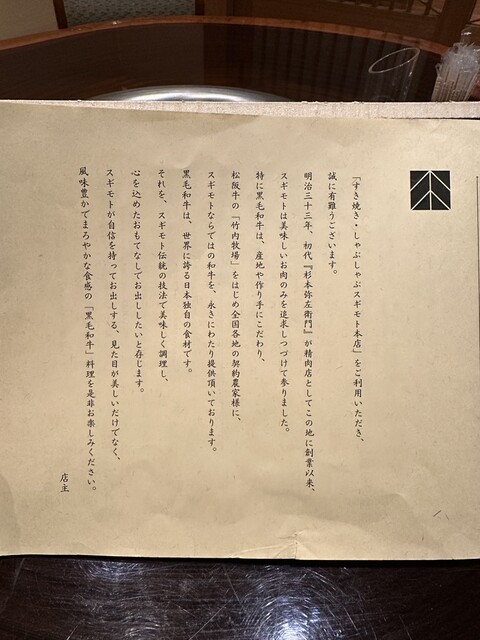 「すき焼き・しゃぶしゃぶスギモト本店」をご利用いただき、
誠に有難うございます。
明治三十三年、初代『杉本弥左衛門』が精肉店としてこの地に創業以来、
スギモトは美味しいお肉のみを追求しつづけて参りました。
特に黒毛和牛は、産地や作り手にこだわり、
松阪牛の「竹内牧場」をはじめ全国各地の契約農家様に、
スギモトならではの和牛を、永きにわたり提供頂いております。
黒毛和牛は、世界に誇る日本独自の食材です。
それを、スギモト伝統の技法で美味しく調理し、
心を込めたおもてなしでお出ししたいと存じます。
スギモトが自信を持ってお出しする、見た目が美しいだけでなく、
風味豊かでまろやかな食感の「黒毛和牛」料理を是非お楽しみください。
店主